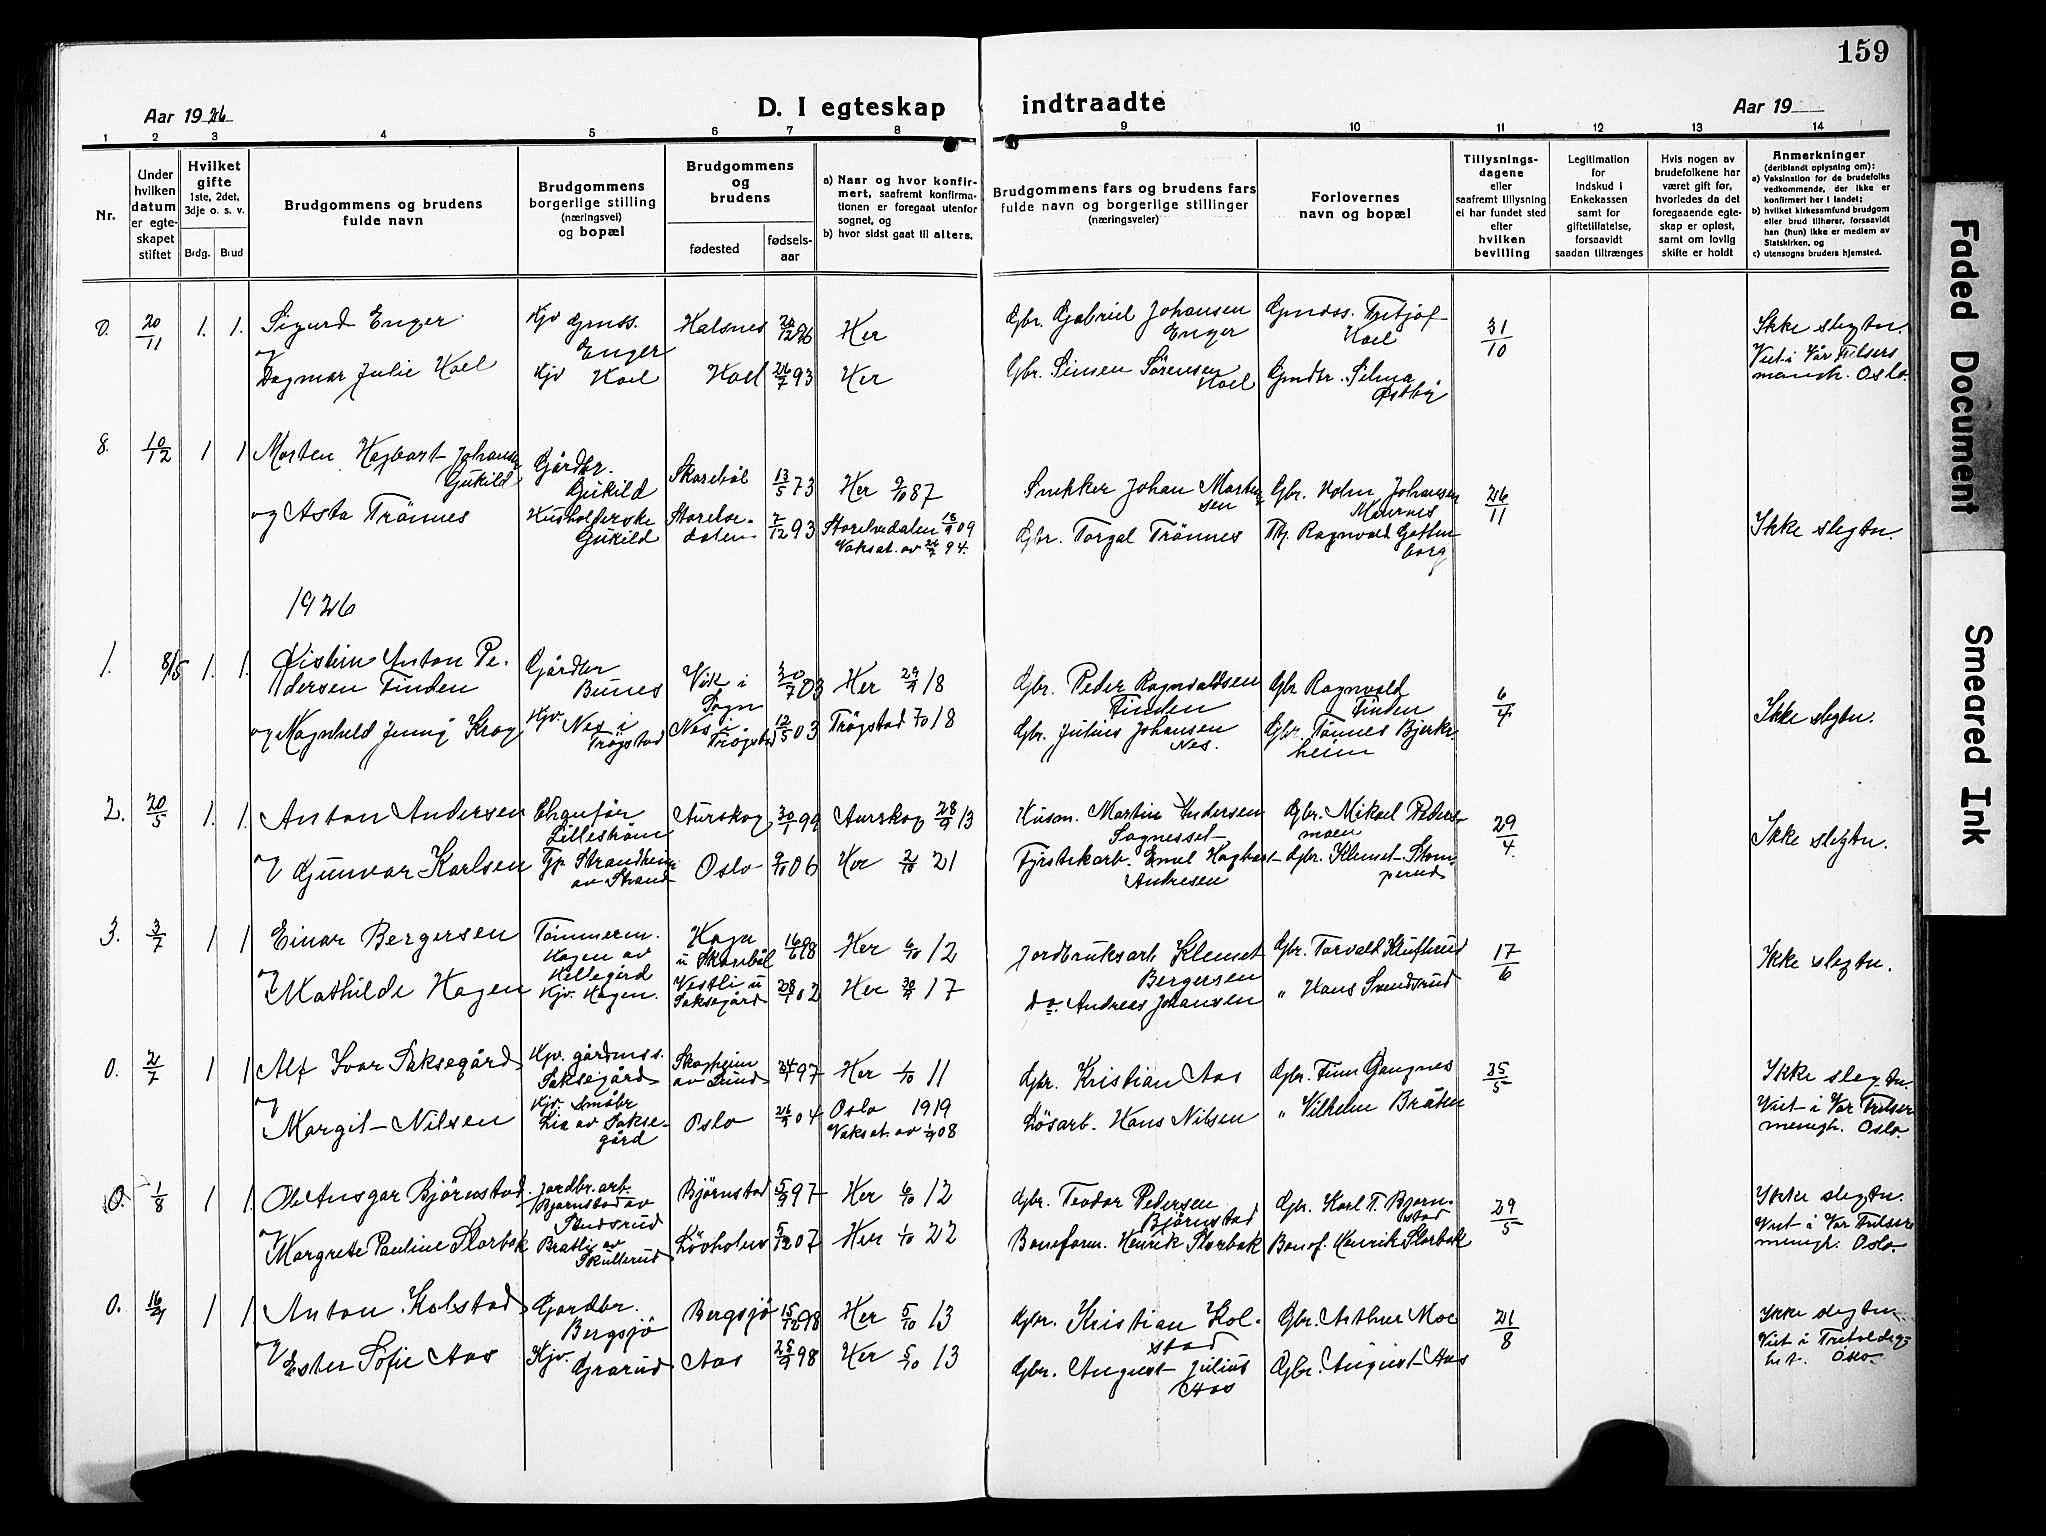 159
Aar 1926
D. I egteskap indtraadte
Aar 19
1 2 3 4 5 6 7 8 9 10 11 12 13 14
Nr.
Under hvilken datum er egteskapet stiftet
Hvilket gifte
1ste, 2det, 3dje o. s. v.
Brdg. Brud
Brudgommens og brudens fulde navn
Brudgommens borgerlige stilling (næringsvei) og bopæl
Brudgommens og brudens
fødested
fødsels-aar
a) Naar og hvor konfirmert, saafremt konfirmationen er foregaat utenfor sognet, og
b) hvor sidst gaat til alters.
Brudgommens fars og brudens fars fulde navn og borgerlige stillinger (næringsveier)
Forlovernes navn og bopæl
Tillysningsdagene eller saafremt tillysning ei har fundet sted efter hvilken bevilling
Legitimation for indskud i Enkekassen samt for giftetillatelse, forsaavidt saadan tiltrænges
Hvis nogen av brudefolkene har været gift før, hvorledes da det foregaaende egteskap er opløst, samt om lovlig skifte er holdt
Anmerkninger (deriblandt oplysning om):
a) Vaksination for de brudefolks vedkommende, der ikke er konfirmert her i landet;
b) hvilket kirkesamfund brudgom eller brud tilhører, forsaavidt han (hun) ikke er medlem av Statskirken, og
c) utensogns bruders hjemsted.
0. 20/11 1. 1. Sigurd Enger Kjv Gmds. Enger Halsnes 20/12 96 Her Gbr. Gabriel Johansen Enger Hoel 31/10 Ikke slegtn.
og Dagmar Julie Hoel Kjv Hoel Hoel 26/7 93 Her Gbr. Simen Sörensen Hoel Østby Viet i Vår Frelsers menigh. Oslo.
8. 10/12 1 1 Morten Hagbart Johansen Gukild Gårdbr. Gukild Skarebøl 13/5 73 Her 9/10 87 Snekker Johan Martinsen Gbr. Holm Johansen 26/11
og Asta Trönnes Husholderske Gukild Storelvedalen 7/12 93 Storelvedalen 13/9 09 Vaksat. av 94. Gbr. Torgal Trönnes Ragnvald Ikke slegtn.
1926
1. 8/5 1. 1. Kistein Anton Pedersen Finden Gårdbr Bunes Vik i Sogn 30/7 03 Her 29/9 18 Gbr. Peder Ragnvaldsen Finden Gbr Ragnvald Finden 6/4 Ikke slegtn.
og Magnhild Jenny Krog Kjv. Nes i Trøgstad Nes i Trøgstad 12/5 03 Trøgstad 7/10 18 Gbr. Julius Johansen Nes. Gbr. Tønnes Bjerkeheim
2. 20/5 1. 1. Anton Andersen Chauför Lilleström Aurskog 30/1 99 Aurskog 28/9 13 Husm. Martin Andersen Gbr. Mikael Pedersmoen 29/4. Ikke slegtn.
og Gunvor Karlsen Strandheim av Strand Oslo 9/10 06 Her 2/10 21 Emil Hagbart Andresen Gbr. Klemet
3. 3/7 1 1 Einar Bergersen Tömmerm. Hagen av Kellegård Hagen u Skarebøl 16/6 98 Her 6/10 12 Jordbruksarb Klemet Bergersen Gbr. Torvald Klufterud 17/6 Ikke slegtn.
og Mathilde Hagen Kjv. Hagen. Vestli u Saksegård 28/1 02 Her 30/9 17 do. Andreas Johansen " Hans Svendsrud
0. 2/7 1 1 Alf Ivar Saksegård Kjv. gårdmss. Saksegård Skogheim av Lund 97 Her 1/10 11 Gbr. Kristian Aas Gbr. Finn Gangnes 25/5 Ikke slegtn.
og Margit Nilsen Kjv. Småbr Lia av Saksegård Oslo 26/9 04 Oslo 1919 Vaksat. av 08 Lösarb. Hans Nilsen " Vilhelm Bråten Viet i Vår Frelser menigh. Oslo.
0. 1/8 1 1 Ole Ansgar Björnstad Jordbr. arb. Bjørnstad av Bjørnstad 5/9 97 Her 6/10 12 Gbr. Teodor Pedersen Björnstad Gbr. Karl T. Bjørnstad 29/5 Ikke slegtn.
og Margrete Pauline Storbæk Bratli av Skullerud Lövholm 5/12 07 Her 1/10 22 Baneform. Henrik Storbæk Banef. Henrik Storbæk Viet i Vår Frelsers menigh. Oslo.
0. 16/9 1 1 Anton Kolstad Gardbr. Bergsjø Bergsjø 15/12 98 Her 5/10 13 Gbr. Kristian Kolstad Gbr. Arthur Moe 21/8 Ikke slegtn.
og Ester Sofie Aas Kjv. Grarud Aas 25/9 98 Her 5/10 13 Gbr. August Julius Aas Gbr. August Aas Viet i Oslo.
Faded Document
Smeared Ink